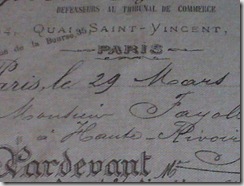 DÉFENSEURS AU TRIBUNAL DE COMMERCE
QUAI SAINT-VINCENT,
de la Bourse, 35
PARIS
Paris, le 29 Mars
Monsieur Fayol
à Haute-Rivoir
Pardevant Me